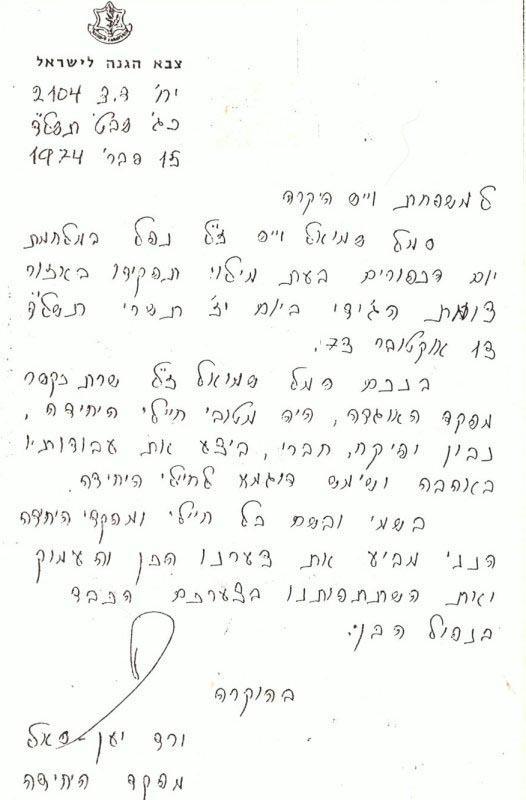 צבא הגנה לישראל
יח' ד.צ 2104
כג' שבט תשל"ד
15 פבר' 1974
למשפחת וייס היקרה
סמל שמואל וייס ז"ל נפל במלחמת
יום הכפורים בעת מילוי תפקידו באזור
צומת הג'ידי ביום יז' תשרי תשל"ד
13 אוקטובר 73.
בנכם סמל שמואל ז"ל שרת כקשר
מפקד האוגדה, היה מטובי חיילי היחידה,
נבון ופיקח, חברי, ביצע את עבודותיו
באהבה ושימש דוגמא לחיילי היחידה.
בשמי ובשם כל חיילי ומפקדי היחידה
הנני מביע את צערנו הכן והעמוק
ואת השתתפותנו בצערכם הכבד
בנפול הבן.
בהוקרה
ורד
מפקד היחידה